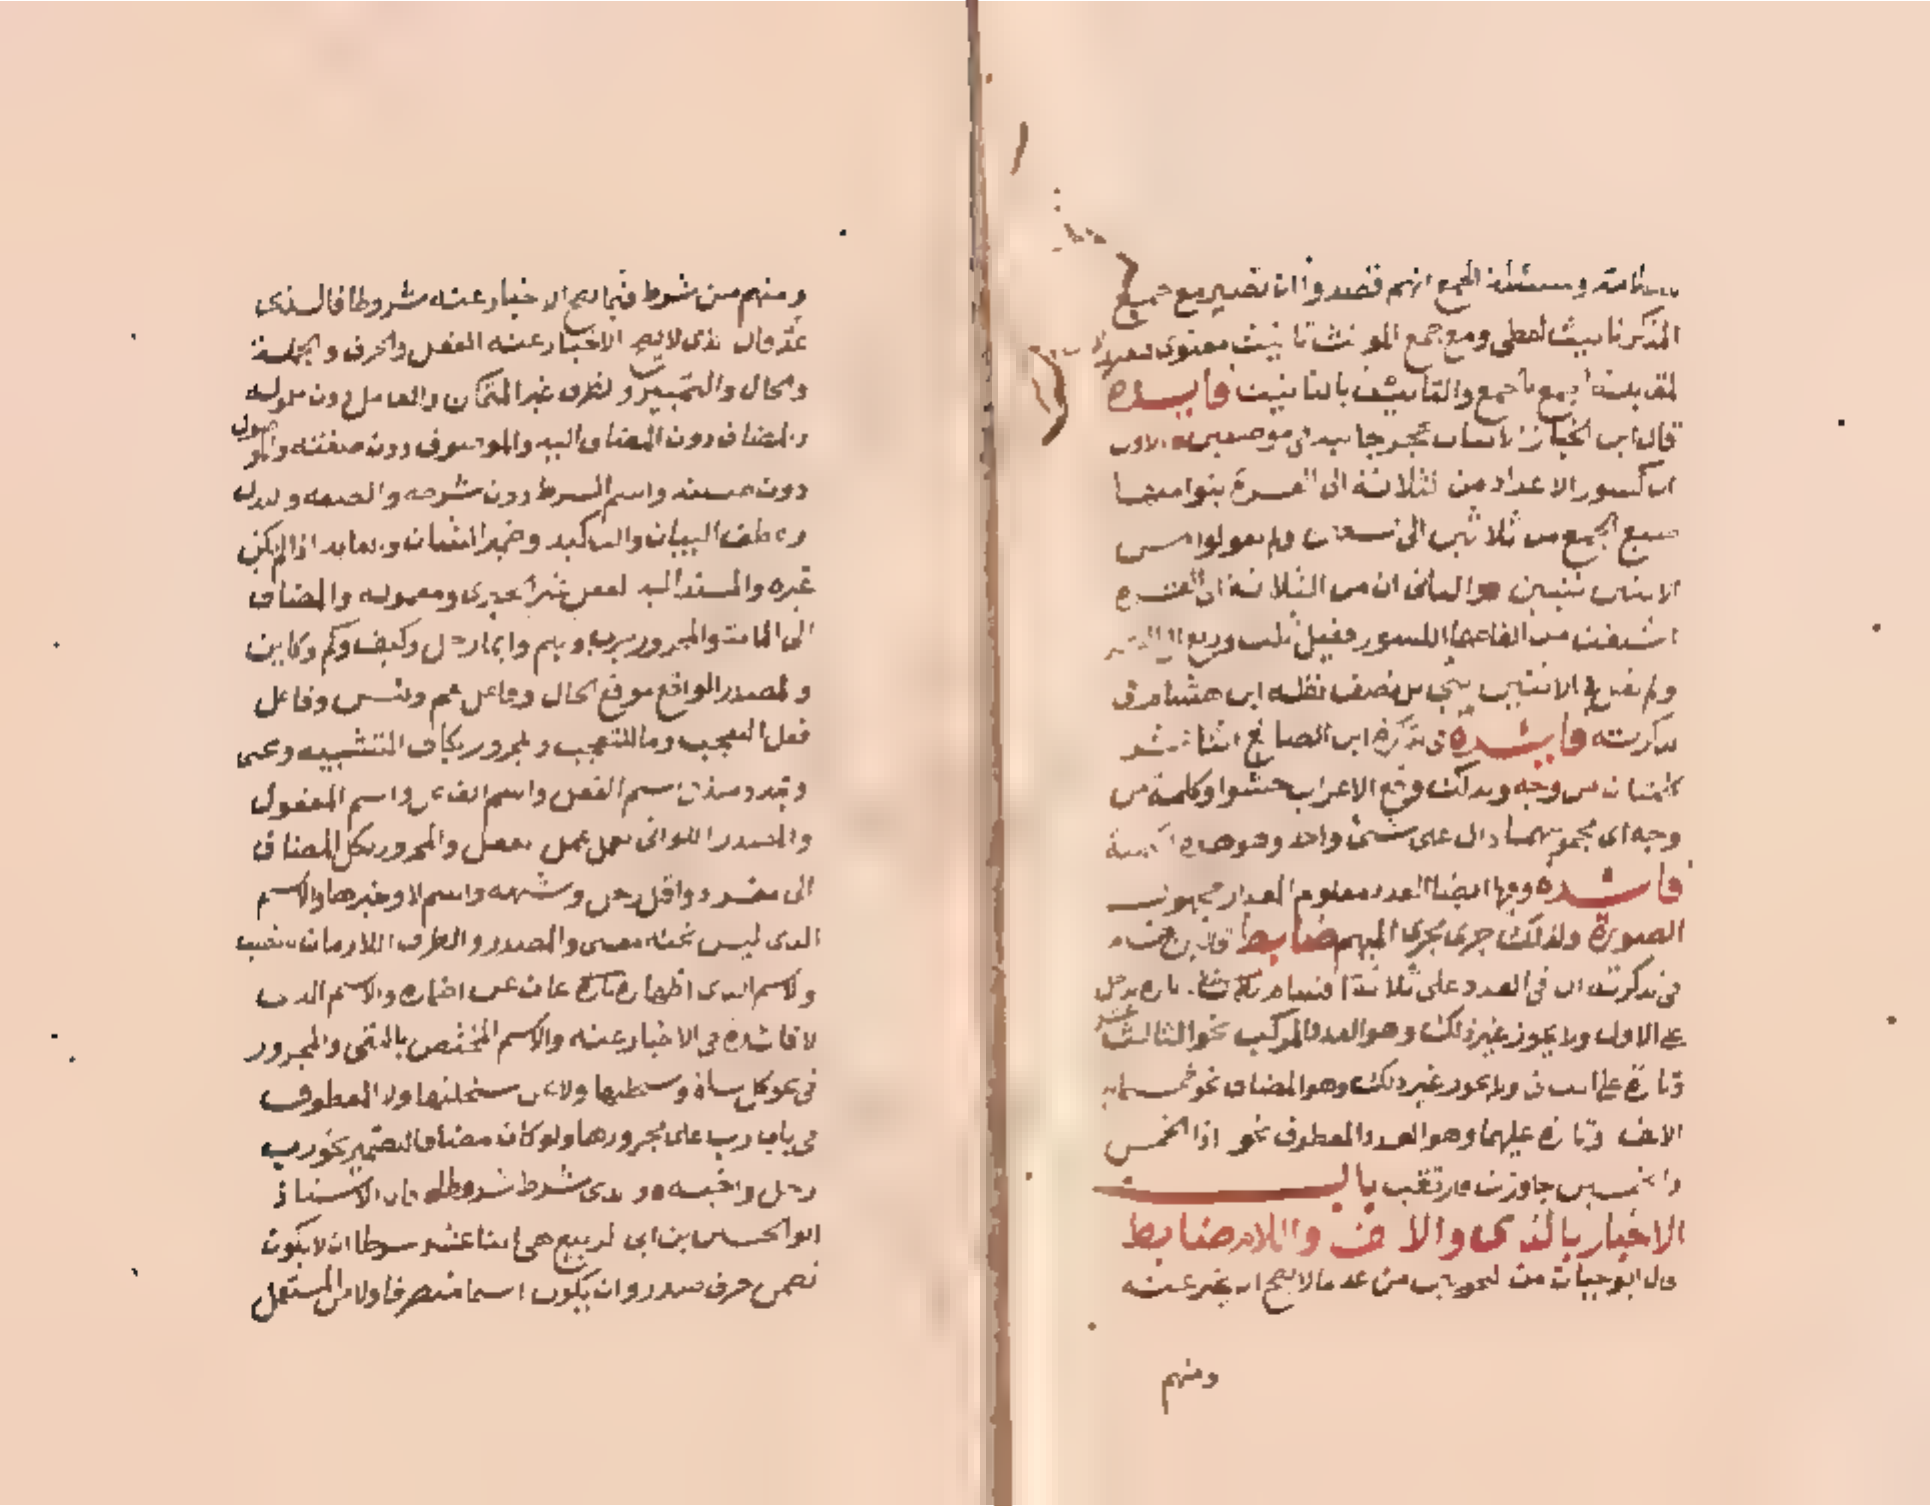 ومسئلة الجمع انهم قصدوا ان تصير مع جميع
المذكر تانيث لفظي ومع جمع المونث تانيث معنوى
الجمع والتانيث بالتانيث فايدة
قال ابن الخباز فى موضعين الاول
ان كسور الاعداد من الثلاثة الى العشرة بنوا منها
صيغ الجمع من ثلاثين الى تسعين ولم يقولوا من
الاثنين ثنيين والثانى ان من الثلاثة الى العشرة
اشتقت من الفاظها الكسور فقيل ثلث وربع الى العشر
ولم يقل فى الاثنين ثنى بل نصف نقله ابن هشام فى
تذكرته فايدة فى تذكرة ابن الصايغ اثنا عشر
كلمتان من وجه ولذلك وقع الاعراب حشوا وكلمة من
وجه اى مجموعهما دال على شئ واحد وهو هذه الكمية
فايدة وفيها ايضا العدد معلوم المقدار مجهول
الصورة ولذلك جرى مجرى المبهم ضابط قال ابن هشام
فى تذكرته ان فى العدد على ثلاثة اقسام تارة يدخل
على الاول ولا يجوز غير ذلك وهو العدد المركب نحو الثالث عشر
وتارة على الثانى ولا يجوز غير ذلك وهو المضاف نحو خمسماية
الالف وتارة عليهما وهو العدد المعطوف نحو اذا الخمس
والخمسين جاوزت فارتقب باب
الاخبار بالذى والالف واللام ضابط
قال ابو حيان من النحويين من عد ما لا يصح ان يخبر عنه
ومنهم
ومنهم من شرط فيما يصح الاخبار عنه شروطا فالذى
عد قال الذى لا يصح الاخبار عنه الفعل والحرف والجملة
والحال والتمييز والظرف غير المتمكن والعامل دون معموله
والمضاف دون المضاف اليه والموصوف دون صفته والموصول
دون صلته واسم الشرط دون شرطه والصفة والبدل
وعطف البيان والتاكيد وضمير الشان والعايد اذا لم يكن
غيره والمسند اليه الفعل غير الخبرى ومعموله والمضاف
الى الماية والمجرور برب وايما رجل وكيف وكم وكاين
والمصدر الواقع موقع الحال وفاعل نعم وبئس وفاعل
فعل التعجب وما للتعجب والمجرور بكاف التشبيه وحتى
ومذ ومنذ واسم الفعل واسم الفاعل واسم المفعول
والمصدر اللواتى تعمل عمل الفعل والمجرور بكل المضاف
الى مفرد واقل رجل وشبهه واسم لا وخبرها والاسم
الذى ليس تحته معنى والمصدر والظرف اللازمان للنصب
والاسم الذى اظهاره ثان عن اضماره والاسم الذى
لا فائدة فى الاخبار عنه والاسم المختص بالنفى والمجرور
فى نحو كل شاة وسخلتها ولا عن سخلتها ولا المعطوف
فى باب رب على مجرورها ولو كان مضافا للضمير نحو رب
رجل واخيه والذى شرط شروطا قال الاستاذ
ابو الحسين بن ابى الربيع هى اثنا عشر شرطا ان لا يكون
تضمن حرف صدر وان يكون اسما متصرفا ولا من المستعمل